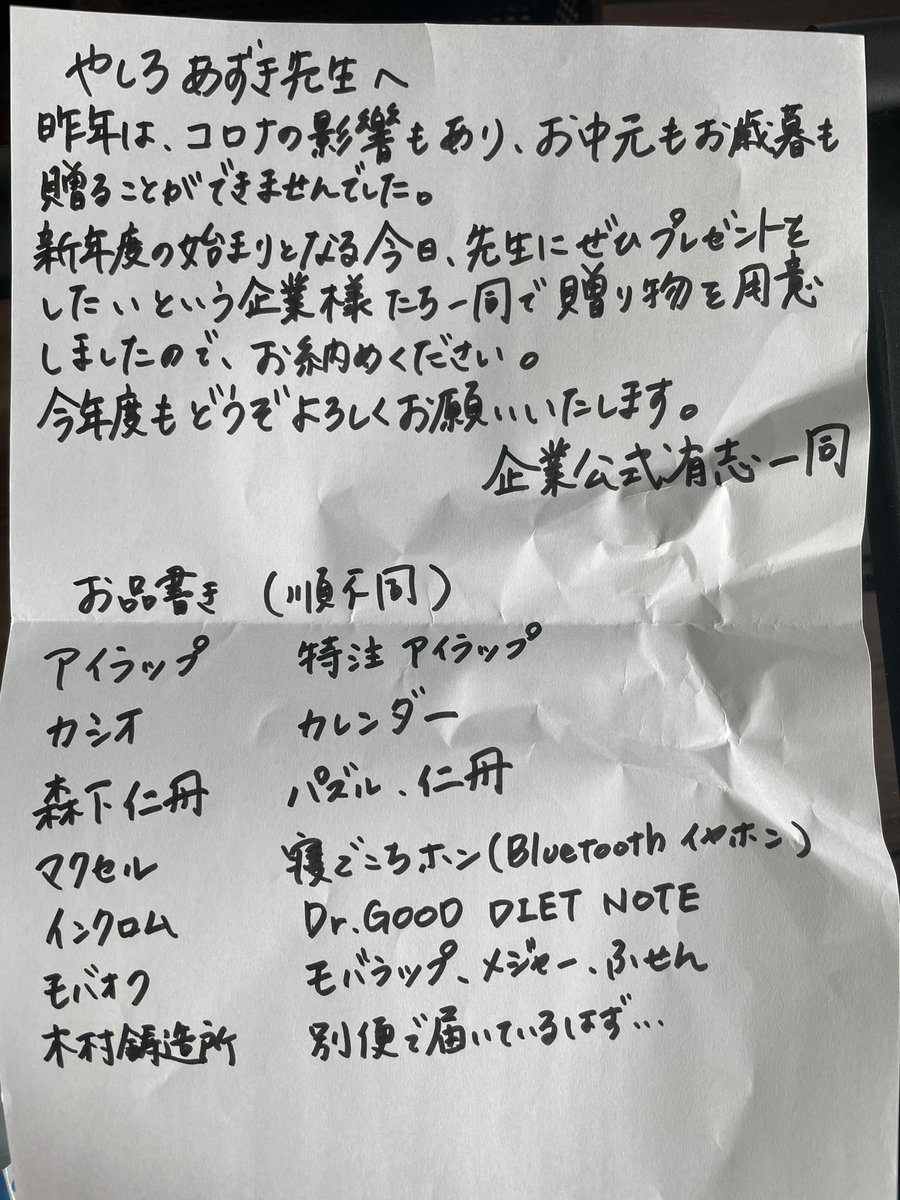 やしろあずき先生へ
昨年は、コロナの影響もあり、お中元もお歳暮も
贈ることができませんでした。
新年度の始まりとなる今日、先生にぜひプレゼントを
したいという企業様たち一同で贈り物を用意
しましたので、お納めください。
今年度もどうぞよろしくお願いいたします。
企業公式有志一同
お品書き (順不同)
アイラップ 特注 アイラップ
カシオ カレンダー
森下仁丹 パズル、仁丹
マクセル 寝ごこちホン(Bluetooth イヤホン)
インクロム Dr.GOOD DIET NOTE
モバオク モバラップ、メジャー、ふせん
木村鋳造所 別便で届いているはず…